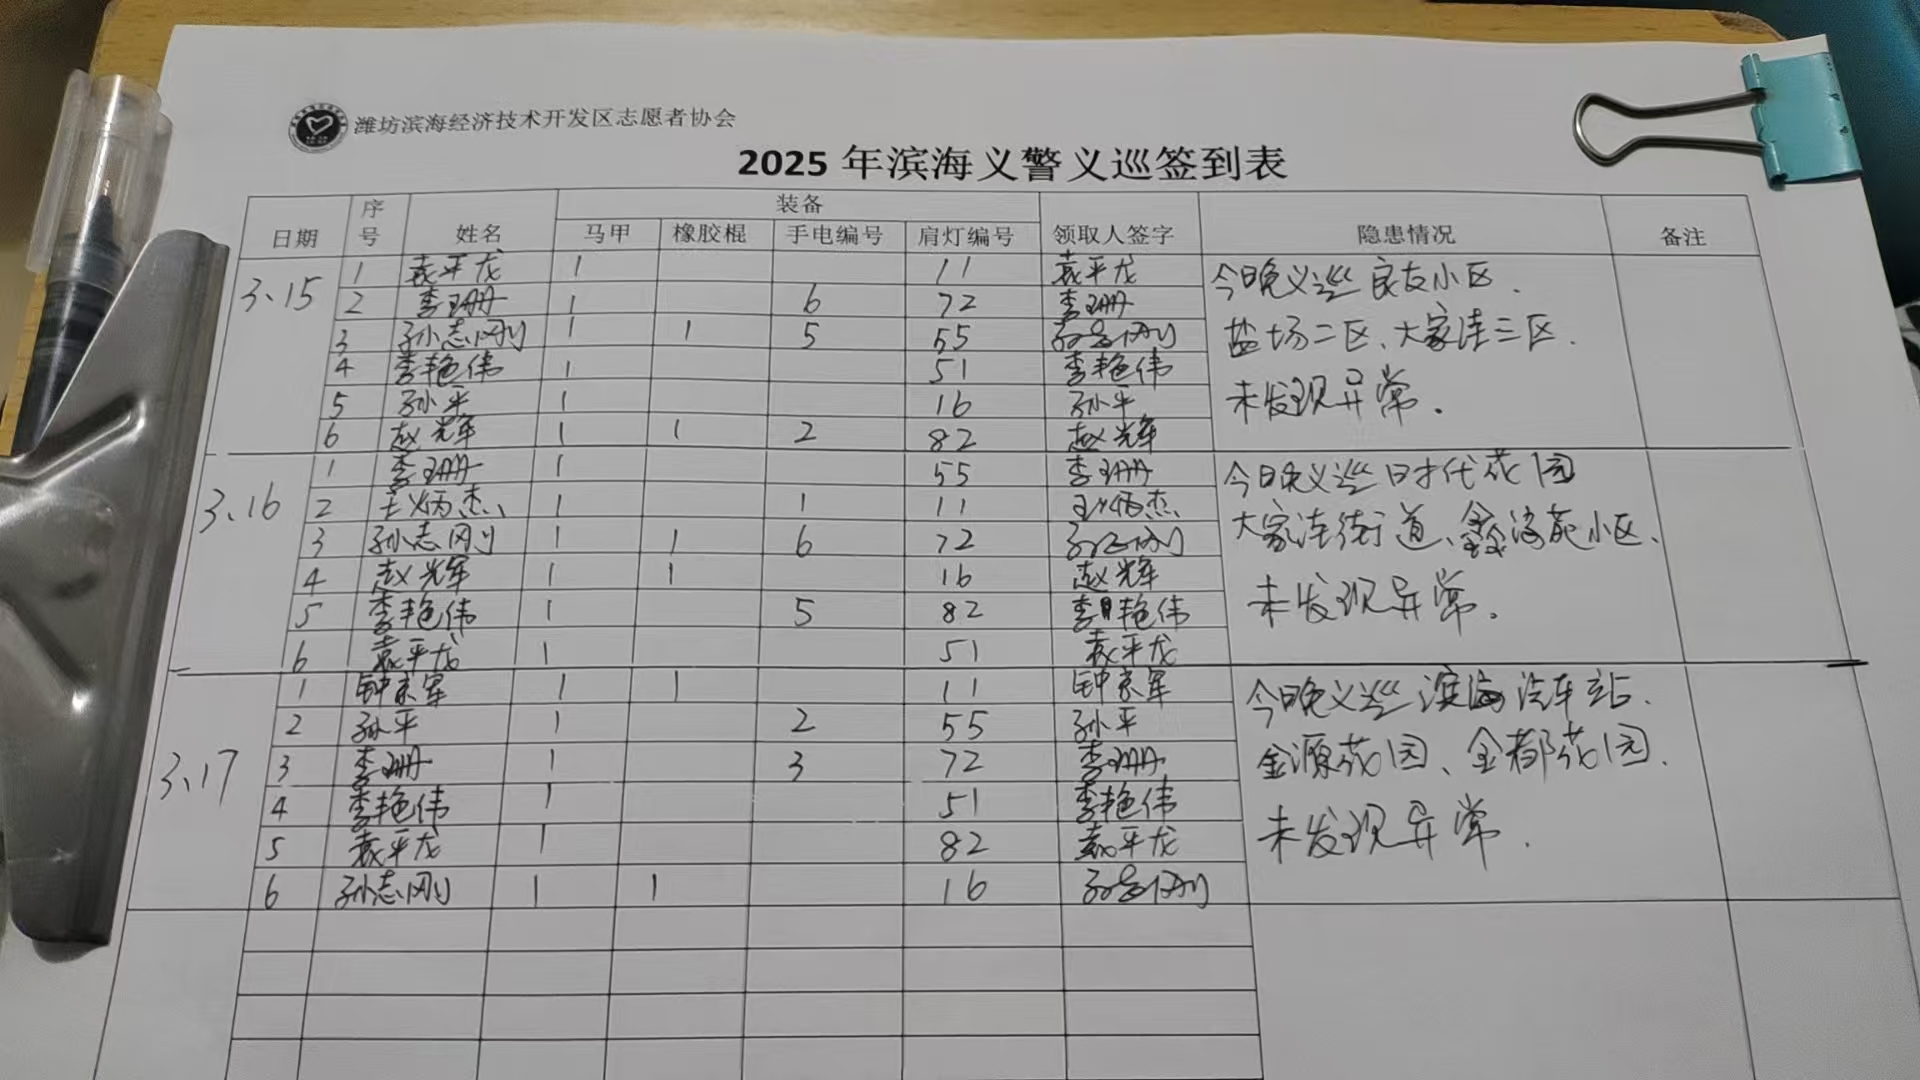 潍坊滨海经济技术开发区志愿者协会
2025 年滨海义警义巡签到表
日期 序号 姓名 装备 领取人签字 隐患情况 备注
马甲 橡胶棍 手电编号 肩灯编号
3.15
1 袁平龙 1 11 袁平龙
2 李珊珊 1 6 72 李珊珊
3 孙志刚 1 1 5 55 孙志刚
4 李艳伟 1 51 李艳伟
5 孙平 1 16 孙平
6 赵光军 1 1 2 82 赵光军
今日晚义巡良友小区.
盐场二区、大家洼三区.
未发现异常.
3.16
1 李珊珊 1 55 李珊珊
2 王炳杰 1 1 11 王炳杰
3 孙志刚 1 1 6 72 孙志刚
4 赵光军 1 1 16 赵光军
5 李艳伟 1 5 82 李艳伟
6 袁平龙 1 51 袁平龙
今日晚义巡时代花园
大家洼街道、鑫海苑小区、
未发现异常.
3.17
1 钟京军 1 1 11 钟京军
2 孙平 1 2 55 孙平
3 李珊珊 1 3 72 李珊珊
4 李艳伟 1 51 李艳伟
5 袁平龙 1 82 袁平龙
6 孙志刚 1 1 16 孙志刚
今日晚义巡滨海汽车站.
金源花园、金都花园.
未发现异常.